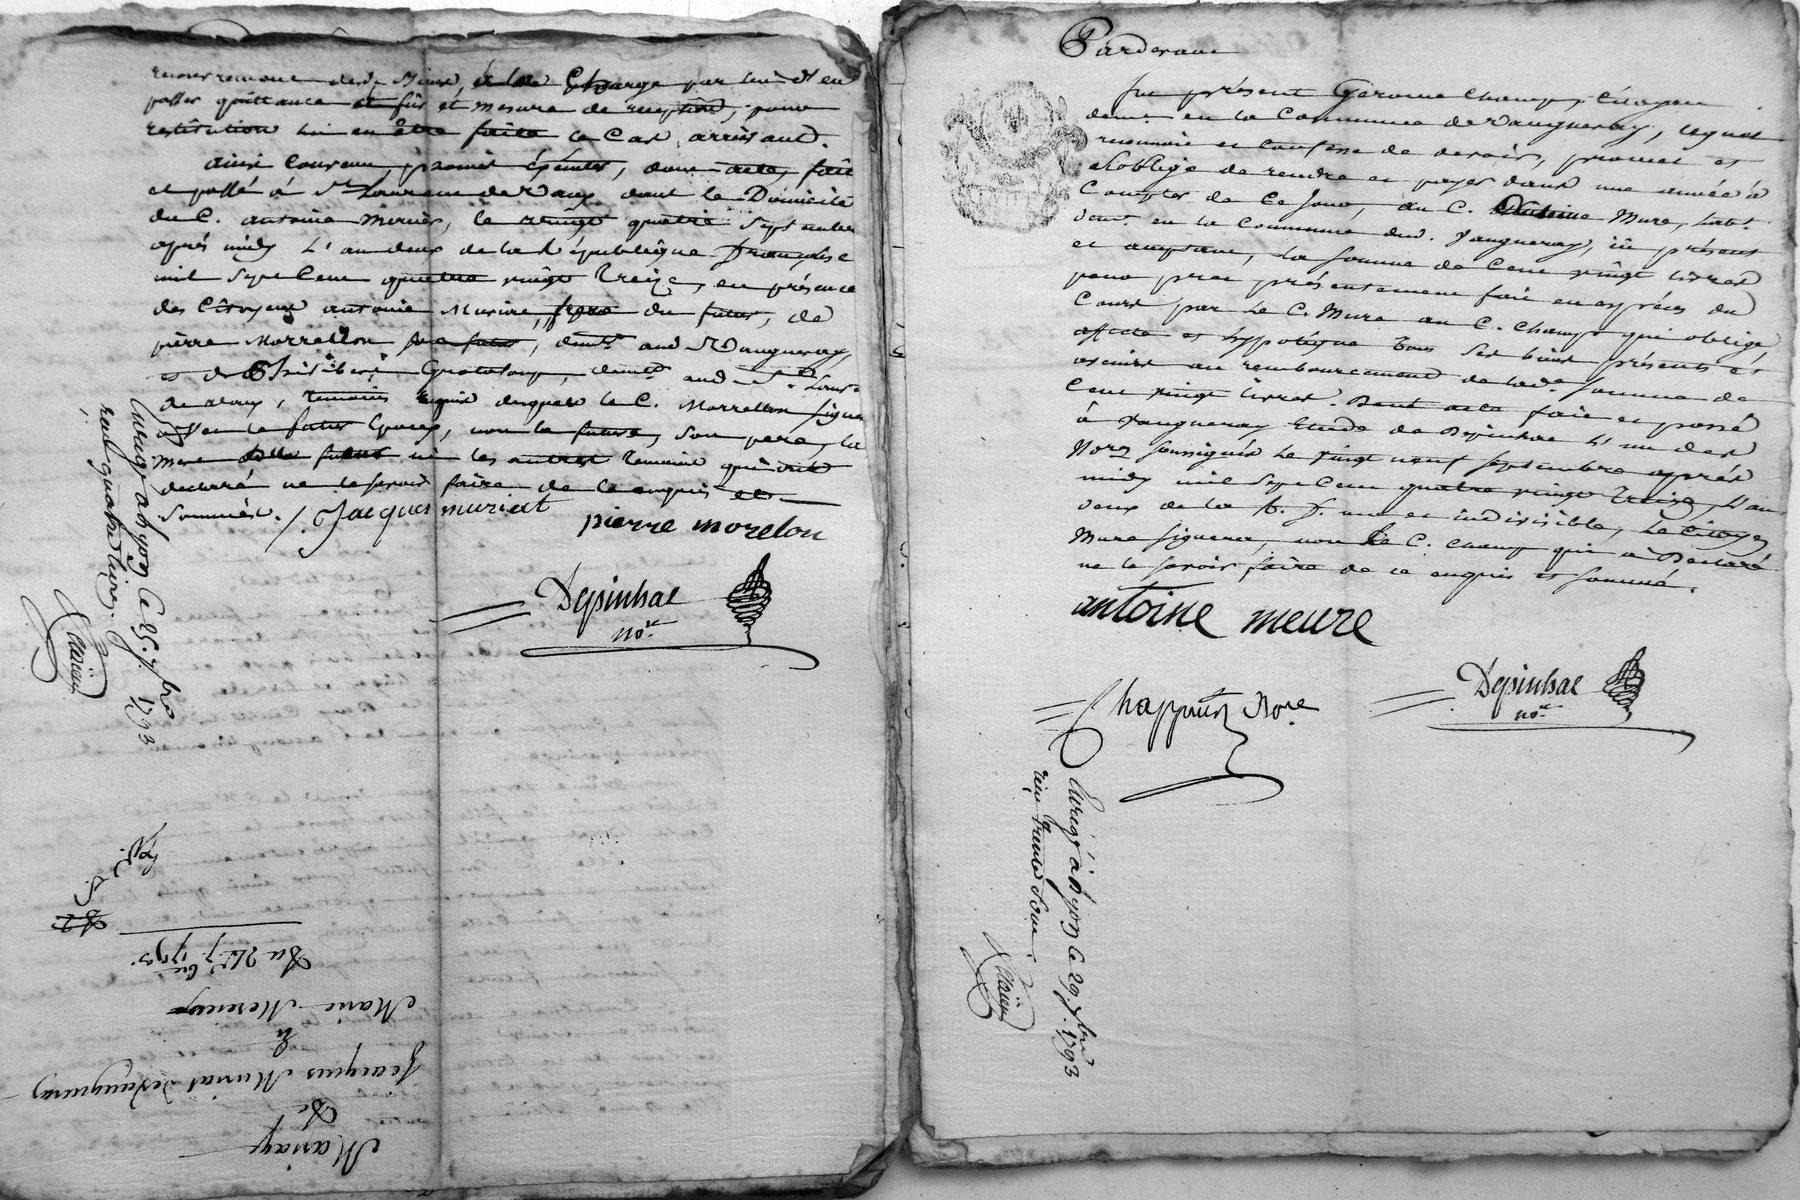 passer quittance et fûr et mesure de reception, pour
restitution lui en être faite le Cas arrivant.
ainsi Convenu, promis épéutés, dont acte, fait
et passé à St Laurent de Vaux dont le Domicile
du C. antoine mercier, le vingt quatre Septembre
après midy L'an deux de la République française
mil Sept Cent quatre vingt treize, en présence
des Citoyens antoine Muriau, frere du futur, de
pierre Morrellon, demt. aud Vaugneray,
et de demt. aud St. Laurt.
de vaux, temoins requis desquels le C. Morrellon signera
avec le futur Epoux, non la future, son pere, la
mere ni les autres temoins qui ont
déclaré ne le savoir faire de ce enquis et
sommés. Jacques muriat
pierre morelon
Depinhac
nore.
Enregé à Lyon le 25. 7bre 1793
reçu quatre livres
Mariage
De
Jacques Muriat de Vaugneray
Et
Marie Mercier
Du 24. 7bre 1793.
Pardevant
fut présent Gerome Champ, Citoyen
demt. en la Commune de Vaugneray, lequel
reconnoit et Confesse de devoir, promet et
s'oblige de rendre et payer dans une année à
Compter de Ce Jour, au C. Antoine Mure, habt.
demt. en la Commune dud. Vaugneray, ici présent
et acceptant, la somme de Cent vingt livres
pour pret présentement fait en espèces du
Cours par Le C. Mure au C. Champ qui oblige
affecte et hyppotèque tous ses biens présents et
avenirs au remboursement de lade. somme de
Cent vingt livres. Dont acte fait et passé
à Vaugneray Etude de Depinhac L'un des
Nores soussignés Le vingt neuf Septembre après
midy mil Sept Cent quatre vingt treize, L'an
deux de la R. f. une et indivisible, Le Citoyen
Mure signera, non Le C. Champ qui a Déclaré
ne le savoir faire de ce enquis et sommé.
antoine meure
Depinhac
nore.
Nore
Enregé à Lyon le 29. 7bre 1793
reçu trente sous